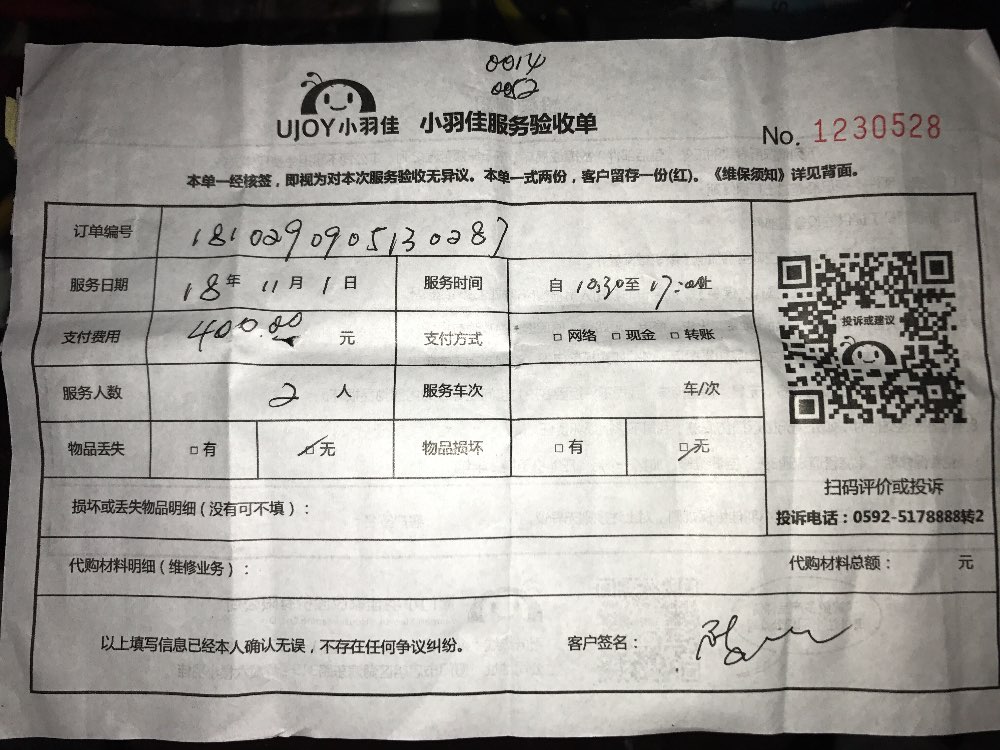 0014
002
UJOY小羽佳 小羽佳服务验收单
No. 1230528
本单一经核签，即视为对本次服务验收无异议。本单一式两份，客户留存一份(红)。《维保须知》详见背面。
订单编号 1810290905130287
服务日期 18年 11月 1日 服务时间 自 10:30至 17:00止
支付费用 400.00 元 支付方式 □ 网络 □ 现金 □ 转账
投诉或建议
服务人数 2 人 服务车次 车/次
物品丢失 □ 有 □ 无 物品损坏 □ 有 □ 无
扫码评价或投诉
损坏或丢失物品明细（没有可不填）：
投诉电话：0592-5178888转2
代购材料明细（维修业务）： 代购材料总额： 元
以上填写信息已经本人确认无误，不存在任何争议纠纷。 客户签名：